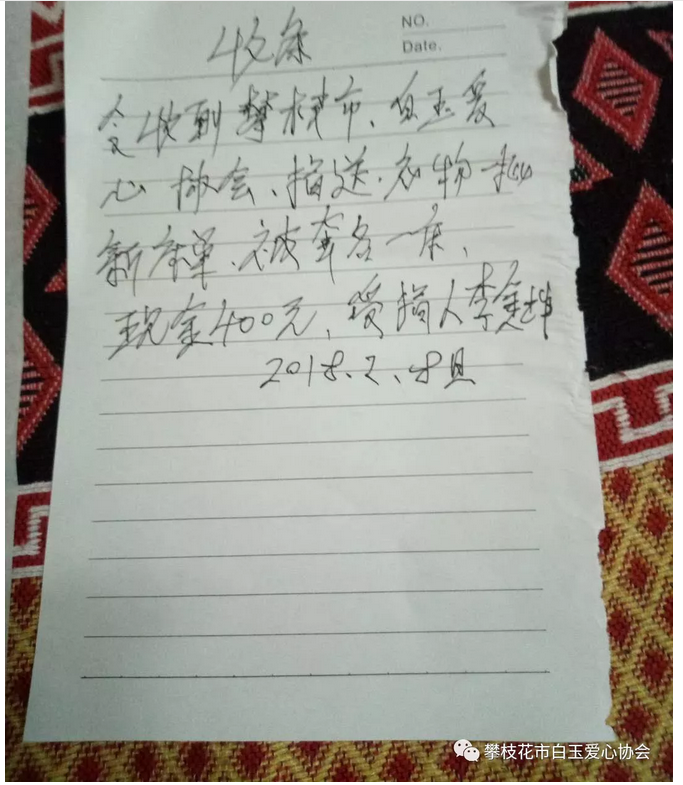 收条
NO.
Date.
今收到攀枝市、白玉爱
心协会、捐送.衣物
新床单、被套各一床、
现金400元，受捐人李
2018.2.8日
攀枝花市白玉爱心协会